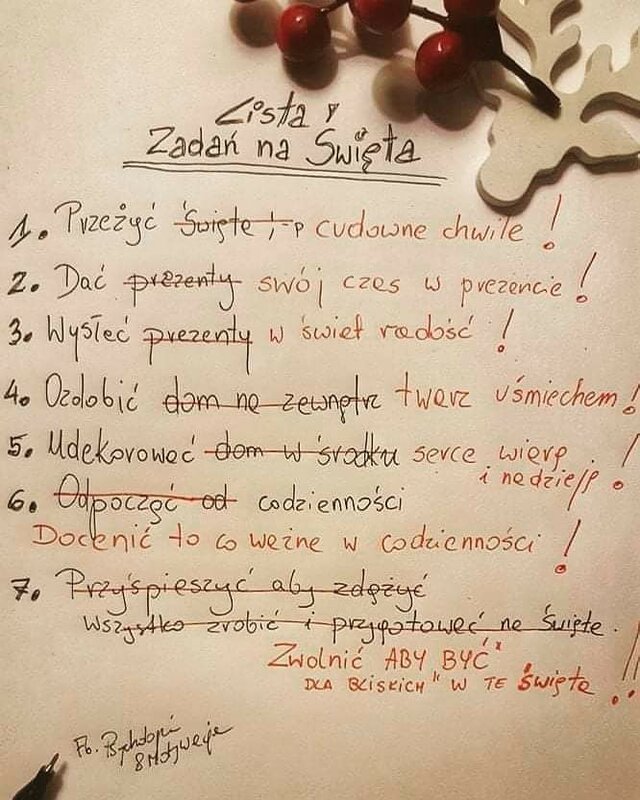 Lista
Zadań na Święta
1. Przeżyć Święta cudowne chwile !
2. Dać prezenty swój czas w prezencie !
3. Wysłać prezenty w świat radość !
4. Ozdobić dom na zewnątrz twarz uśmiechem !
5. Udekorować dom w środku serce wiarą !
i nadzieją
6. Odpocząć od codzienności
Docenić to co ważne w codzienności !
7. Przyśpieszyć aby zdążyć
wszystko zrobić i przygotować na Święta.
Zwolnić ABY BYĆ"
DLA BLISKICH" W TE Święta !!
Fb.
& Motywacje